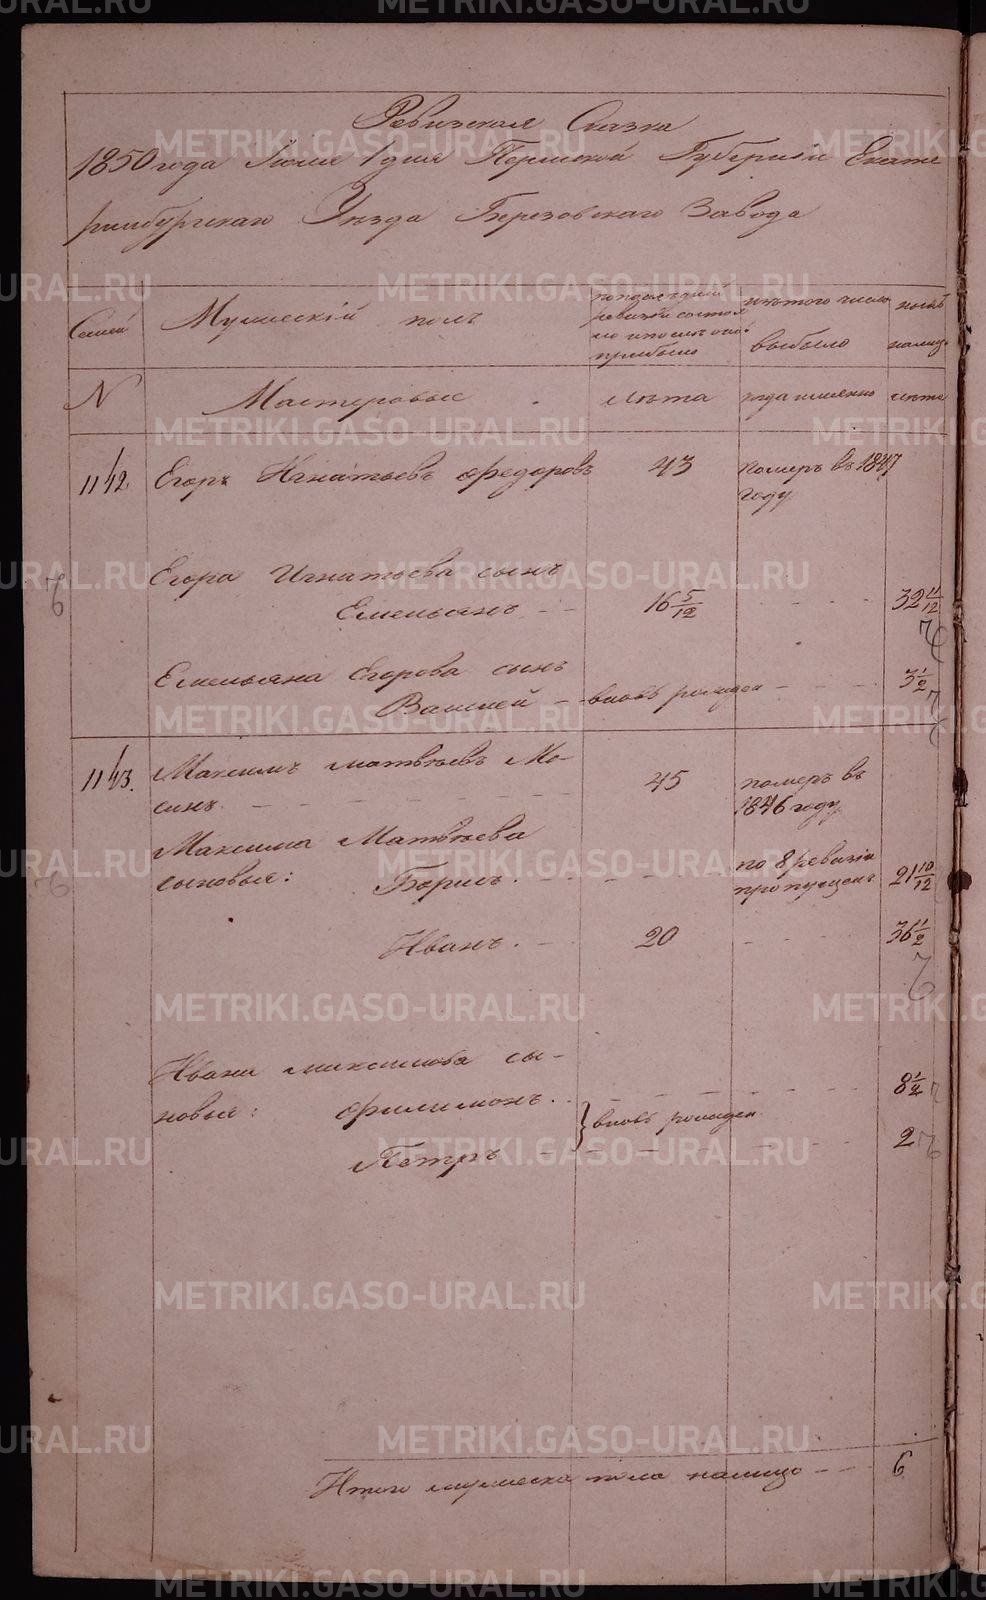 Ревизская Сказка
1850 года Июля 1 дня Пермской Губернии Екате
ринбургскаго Уезда Березовскаго Завода
Семей
Мужеский полъ
по последней
ревизии состоя
ло и после оной
прибыло
изъ того числа
выбыло
ныне
налицо
N
Мастеровые
лета
когда именно
лета
1142
Егоръ Игнатьевъ Федоровъ
43
померъ въ 1847
году
Егора Игнатьева сынъ
Емельянъ - -
16 5/12
32 11/12
Емельяна Егорова сынъ
Василей - вновь рожден
3 1/2
1143.
Максимъ Матвеевъ Мо-
синъ
45
померъ въ
1846 году
Максима Матвеева
сыновья: Борисъ
по 8 ревизии
пропущенъ
21 10/12
Иванъ. -
20
36 1/2
Ивана Максимова сы-
новья: Филимонъ
8 1/2
вновь рожден
Петръ
2
Итого мужеска пола налицо - -
6
METRIKI.GASO-URAL.RU